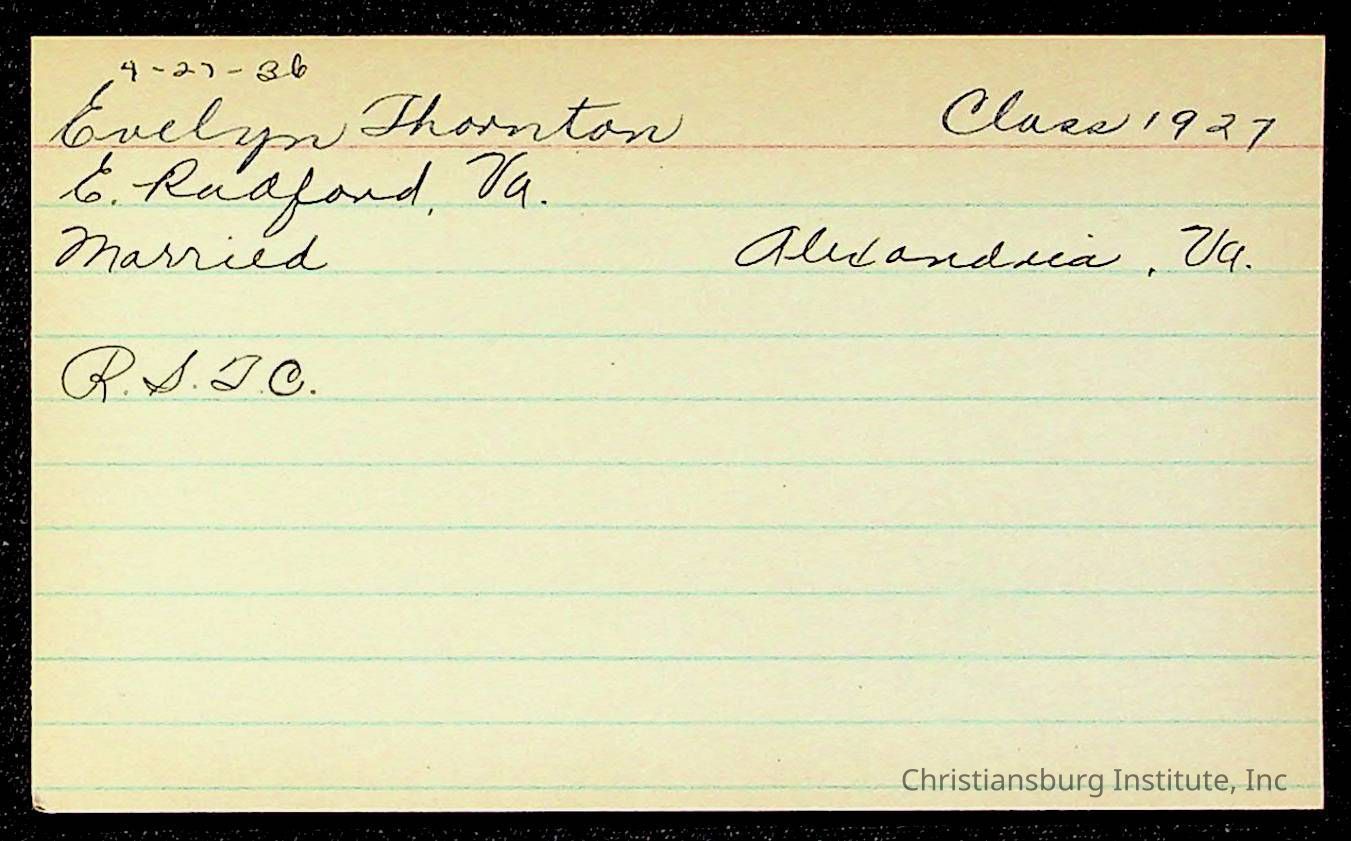 4-27-36
Evelyn Thornton Class 1927
E. Radford, Va.
Married Alexandria, Va.
R.S.T.C.
Christiansburg Institute, Inc